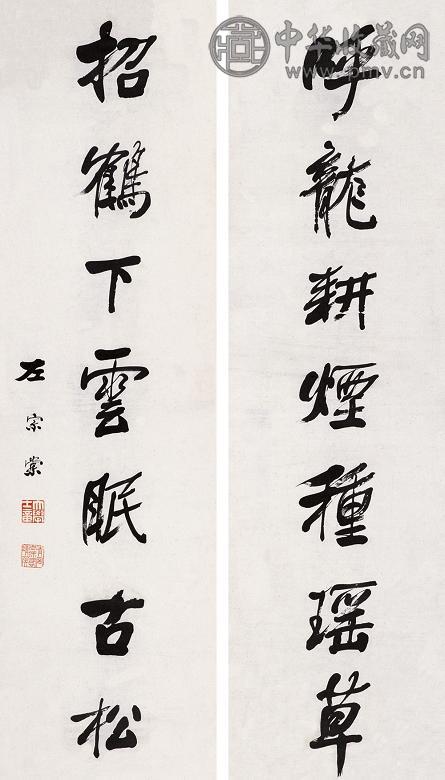 中华收藏网
www.pmv.cn
呼龍耕煙種瑤草
招鶴下雲眠古松
左宗棠
大學士章